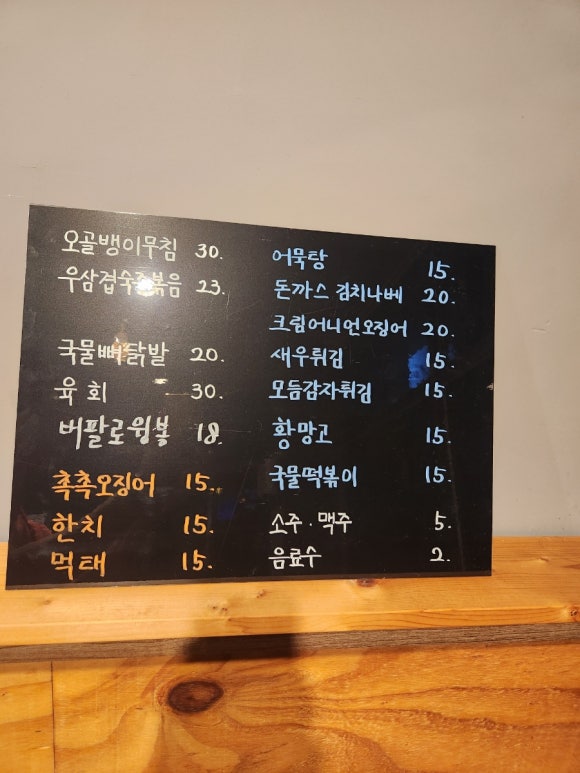 오골뱅이무침 30.
우삼겹숙주볶음 23.
국물뼈닭발 20.
육회 30.
버팔로윙봉 18.
촉촉오징어 15.
한치 15.
먹태 15.
어묵탕 15.
돈까스 김치나베 20.
크림어니언오징어 20.
새우튀김 15.
모듬감자튀김 15.
황망고 15.
국물떡볶이 15.
소주·맥주 5.
음료수 2.